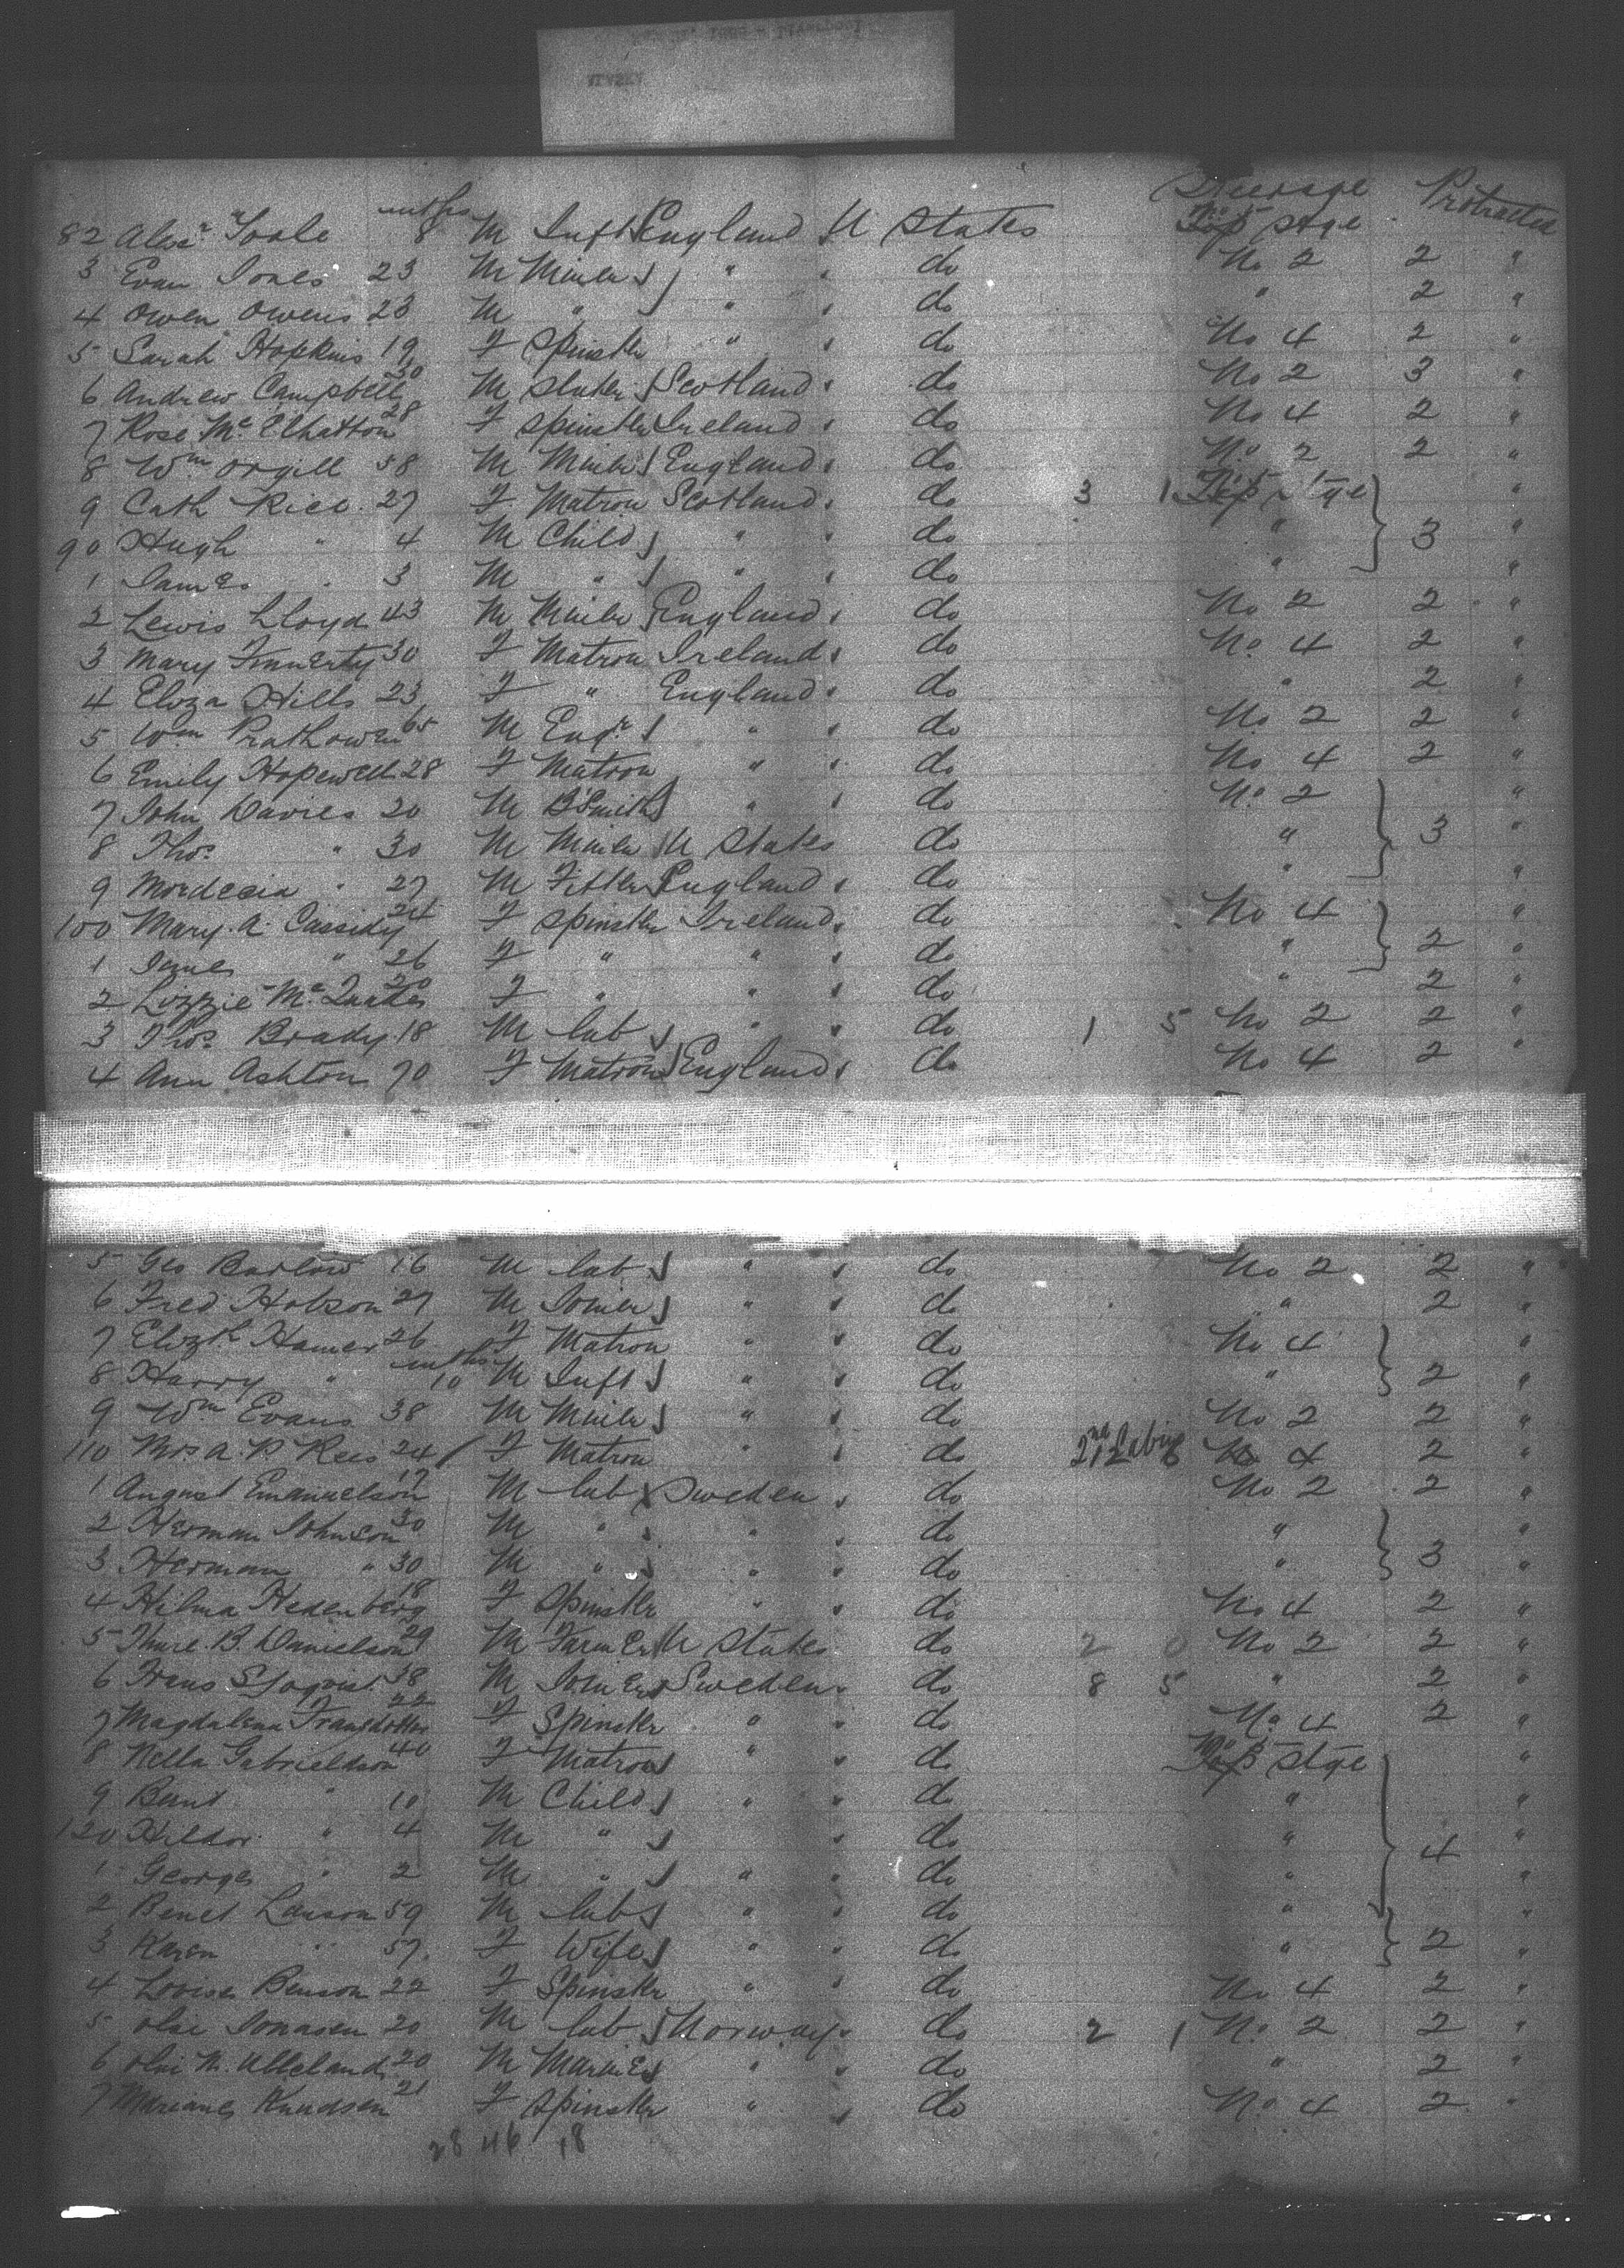 Steerage Protracted
mths
82 Alexr Toole 8 M Inft England U States No 5 Stge
3 Evan Jones 23 M Miner " " do No 2 2 "
4 Owen Owens 23 M " " " do " 2 "
5 Sarah Hopkins 19 F Spinster " " do No 4 2 "
6 Andrew Campbell 30 M Slater Scotland " do No 2 3 "
7 Rose Mc Elhatton 28 F Spinster Ireland " do No 4 2 "
8 Wm Orgill 58 M Miner England " do No 2 2 "
9 Cath Rice 27 F Matron Scotland " do 3 1 No 5 Stge "
90 Hugh " 4 M Child " " do " 3 "
1 James " 3 M " " " do " "
2 Lewis Lloyd 43 M Miner England " do No 2 2 "
3 Mary Finnerty 30 F Matron Ireland " do No 4 2 "
4 Eliza Hills 23 F " England " do " 2 "
5 Wm 65 M Engr " " do No 2 2 "
6 Emily Hopewell 28 F Matron " " do No 4 2 "
7 John Davies 20 M B Smith " " do No 2 "
8 Thos " 30 M Miner U States do " 3 "
9 Mordecia " 27 M Fitter England " do " "
100 Mary A. Cassidy 24 F Spinster Ireland " do No 4 "
1 James " 26 F " " " do " 2 "
2 Lizzie Mc 20 F " " " do " 2 "
3 Thos Brady 18 M lab " " do 1 5 No 2 2 "
4 Ann Ashton 70 F Matron England " do No 4 2 "
5 Geo Barlow 16 M lab " " do No 2 2 "
6 Fred Hobson 27 M Joiner " " do " 2 "
7 Elizth Hamer 26 F Matron " " do No 4 "
8 Harry " mths 10 M Inft " " do " 2 "
9 Wm Evans 38 M Miner " " do No 2 2 "
110 Mrs A. P. Rees 24 F Matron " " do 2nd Cabin 12 6 No 4 2 "
1 August Emanuelson 17 M lab Sweden " do No 2 2 "
2 Herman Johnson 30 M " " " do " "
3 Herman " 30 M " " " do " 3 "
4 Hilma Hedenberg 18 F Spinster " " do No 4 2 "
5 Thure B. Danielson 29 M Farmer U States do 2 0 No 2 2 "
6 Hans 38 M Joiner Sweden " do 8 5 " 2 "
7 Magdalena 22 F Spinster " " do No 4 2 "
8 Nella Gabrieldson 40 F Matron " " do No 5 Stge "
9 Bant " 10 M Child " " do " "
120 Hildor " 4 M " " do " 4 "
1 George " 2 M " " " do " "
2 Benct Lauson 59 M lab " " do " "
3 Karen " 57 F Wife " " do " 2 "
4 Louisa Benson 22 F Spinster " " do No 4 2 "
5 Olie Jonasen 20 M lab Norway " do 2 1 No 2 2 "
6 Olai M. Ulleland 20 M Mariner " " do " 2 "
7 Mariane Knudsen 21 F Spinster " " do No 4 2 "
28 46 18